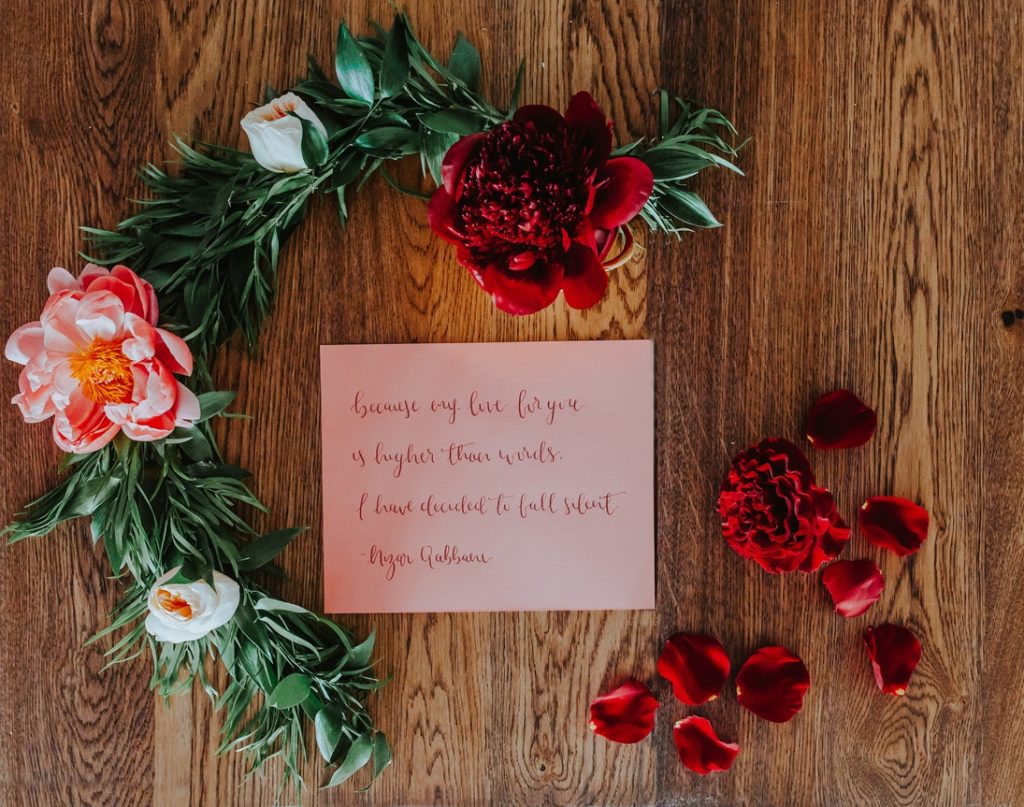 because my love for you
is higher than words,
I have decided to fall silent
-Nizar Qabbani